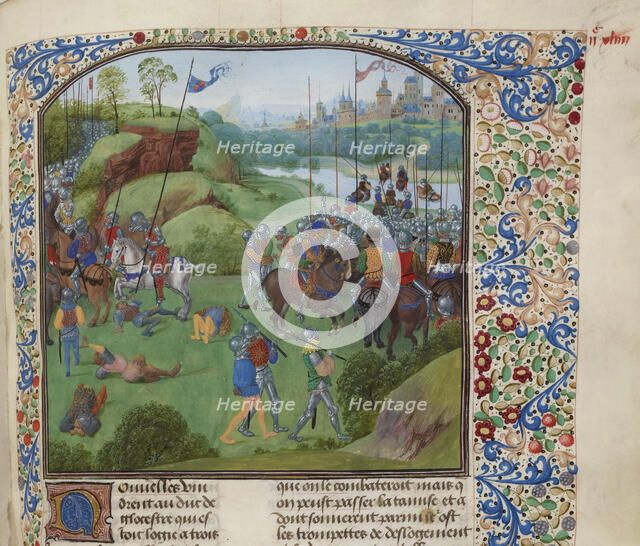 Heritage
Heritage
Heritage
Heritage
Heritage
C
Heritage
Heritage
Nouvelles vin
drent au duc de
glocestre qui es
toit logie a trois
que on le combateroit mais q
on peust passer la tamise et a
dont sonnerent parmi l ost
les trompettes de deslogement